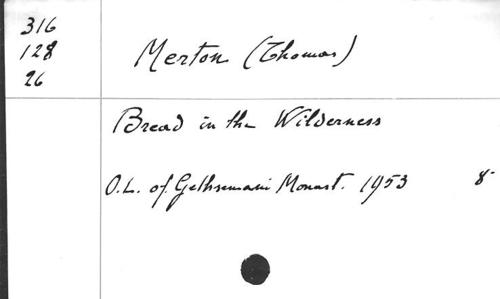 316
128
26
Merton (Thomas)
Bread in the Wilderness
O.L. of Gethsemani Monast. 1953 8-